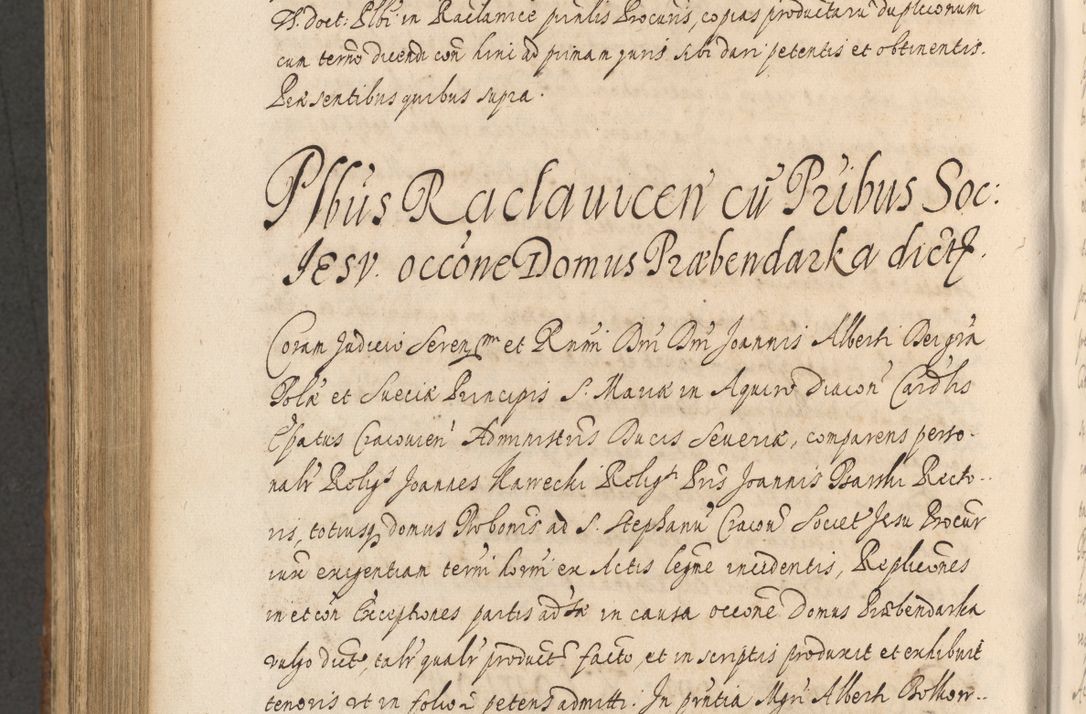 N. doct: Plbi in Raclauice pñalis Procuris, copias productarũ duplicionum
cum termo dicendi con hinc ad primam juris sibi dari petentis et obtinentis.
Præsentibus quibus supra.
Plbus Raclauicen cũ Pribus Soc:
JESV. occõne Domus Præbendarka dictæ.
Coram Judicio Serenssm et Rnmi Dni Dni Joannis Alberti Dei gra
Polæ et Sueciæ Principis S. Mariæ in Aquiro Diacon Cardlis
Epatus Cracouien Administris Ducis Seueriæ, comparens perso-
nalr Religs Joannes Kawecki Religi Pris Joannis Recto-
ris, totiusq domus Probonis ad S. Stephanũ Cracou Societ Jesu Procur
iuxt exigentiam termi horni ex Actis legme incidentis, Replicõnes
in et con Exceptiones partis aduæ in causa occone Domus Præbendarka
vulgo dictæ, talr qualr product facto, et in scriptis produxit et exhibuit
tenoris vt in folio petens admitti. In pñtia Mgri Alberti Bolkow-